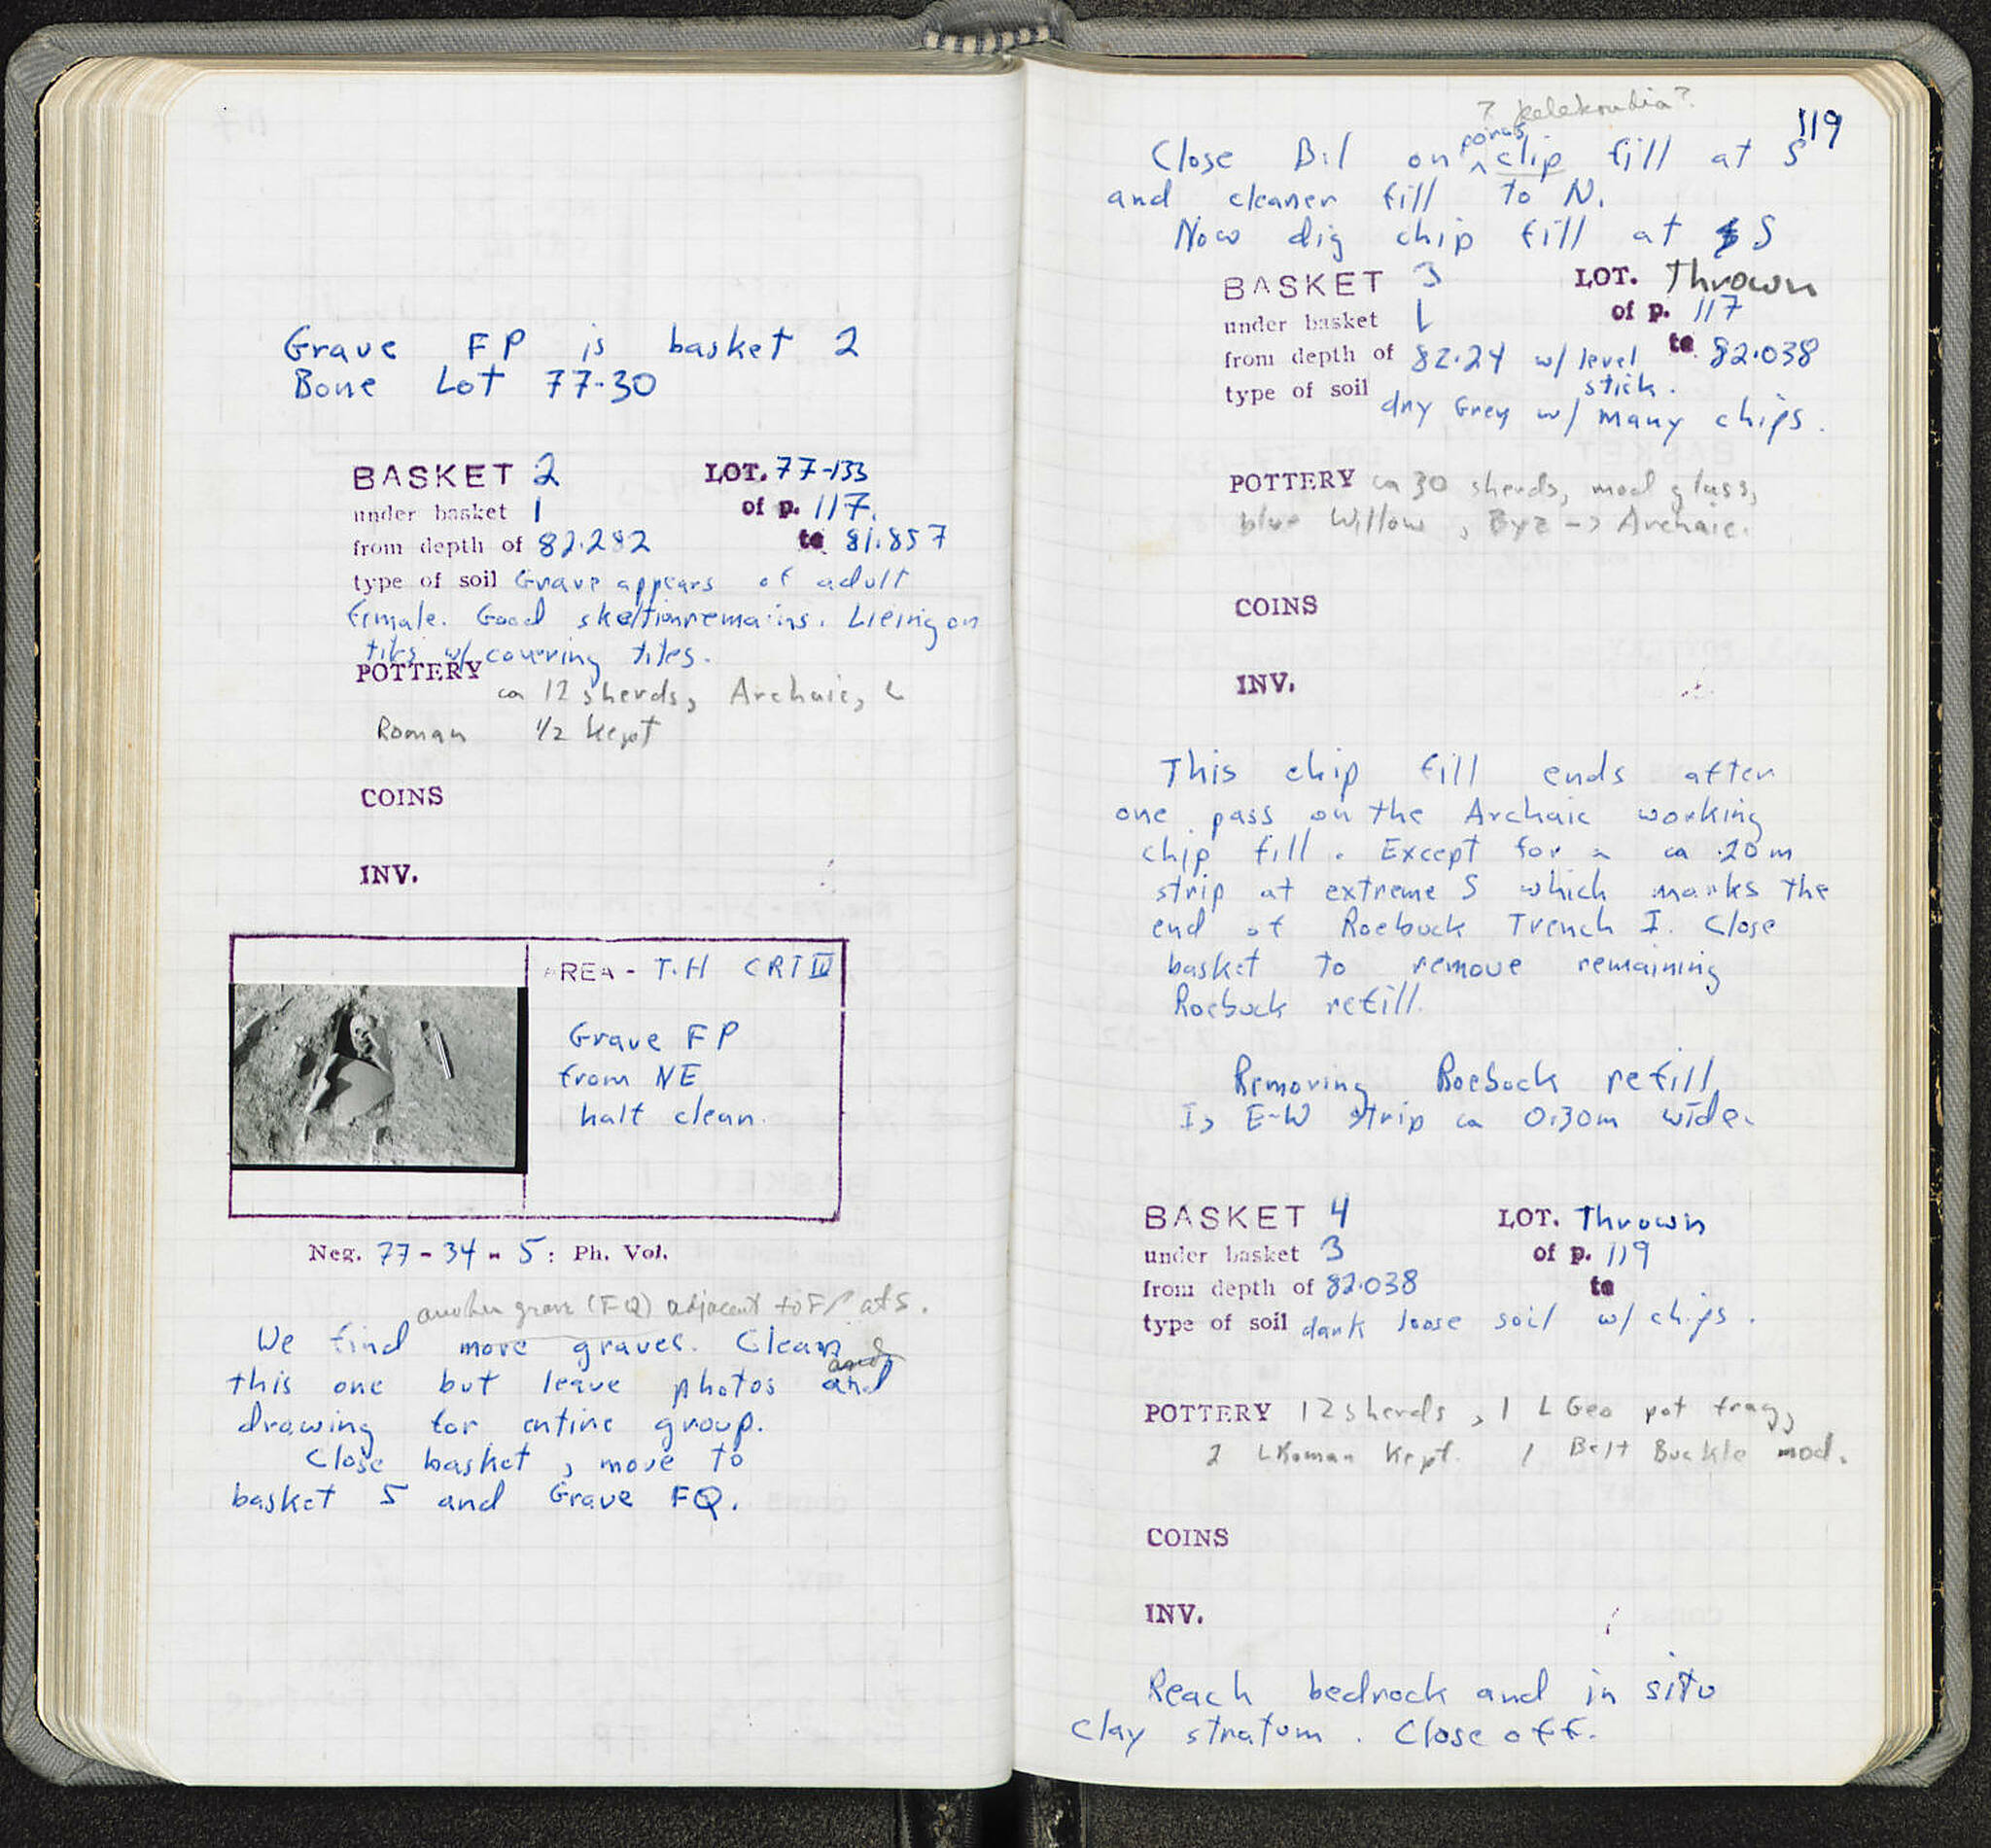 Grave FP is basket 2
Bone Lot 77-30
BASKET 2 LOT. 77-133
under basket 1 of p. 117.
from depth of 82.282 to 81.857
type of soil Grave appears of adult
female. Good skeltionremains. Lieing on
tiles w/ covering tiles.
POTTERY
ca 12 sherds, Archaic, L
Roman 1/2 kept
COINS
INV.
AREA - T.H CRT IV
Grave FP
from NE
half clean.
Neg. 77-34-5: Ph. Vol.
another grave (FQ) adjacent to FP at S.
We find more graves. Clean
and
this one but leave photos and
drawing for entire group.
Close basket, move to
basket 5 and Grave FQ.
? pelekoudia?
119
poros
Close B:1 on ^ clip fill at S
and cleaner fill to N.
Now dig chip fill at S
BASKET 3 LOT. Thrown
under basket 1 of p. 117
from depth of 82.24 w/ level to 82.038
stick.
type of soil dry Grey w/ many chips.
POTTERY ca 30 sherds, mod glass,
blue Willow, Byz -> Archaic.
COINS
INV.
This chip fill ends after
one pass on the Archaic working
chip fill. Except for a ca .20m
strip at extreme S which marks the
end of Roebuck Trench I. Close
basket to remove remaining
Roebuck refill.
Removing Roebuck refill
Is E-W strip ca 0.30m wide.
BASKET 4 LOT. Thrown
under basket 3 of p. 119
from depth of 82.038 to
type of soil dark loose soil w/ chips.
POTTERY 12 sherds, 1 L Geo pot frag,
2 L Roman kept. 1 Belt Buckle mod.
COINS
INV.
Reach bedrock and in situ
clay stratum. Close off.